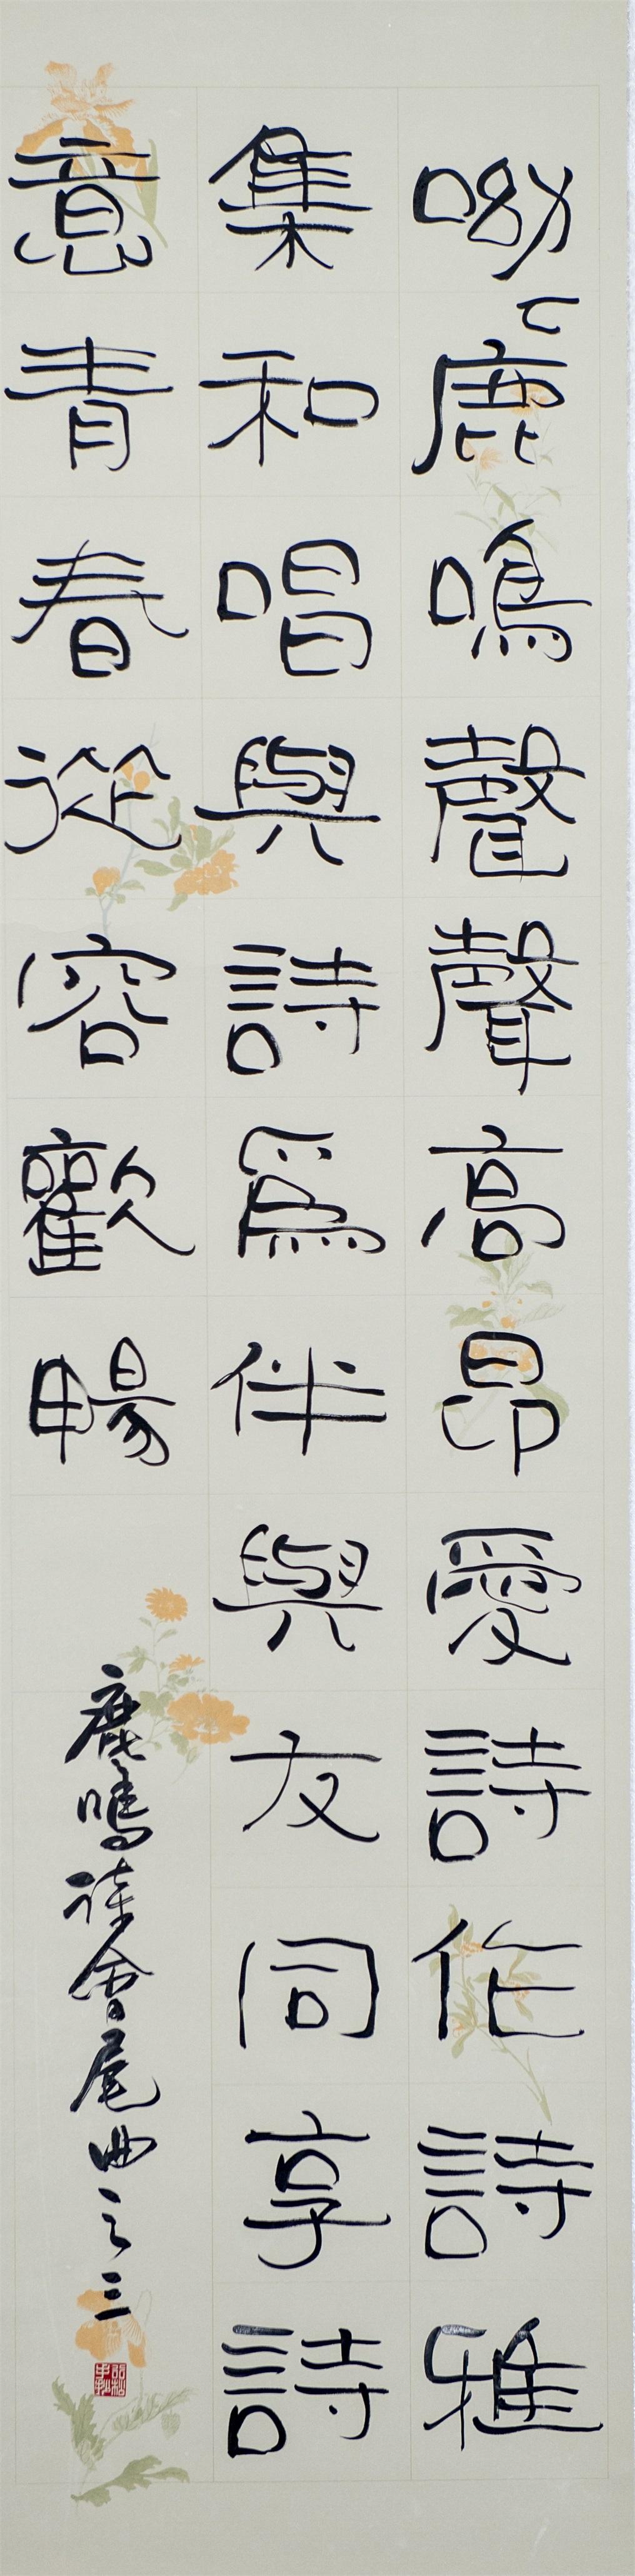 呦〻鹿鳴聲聲高昂愛詩作詩雅
集和唱與詩爲伴與友同享詩
意青春從容歡暢
鹿鳴詩會尾曲之三